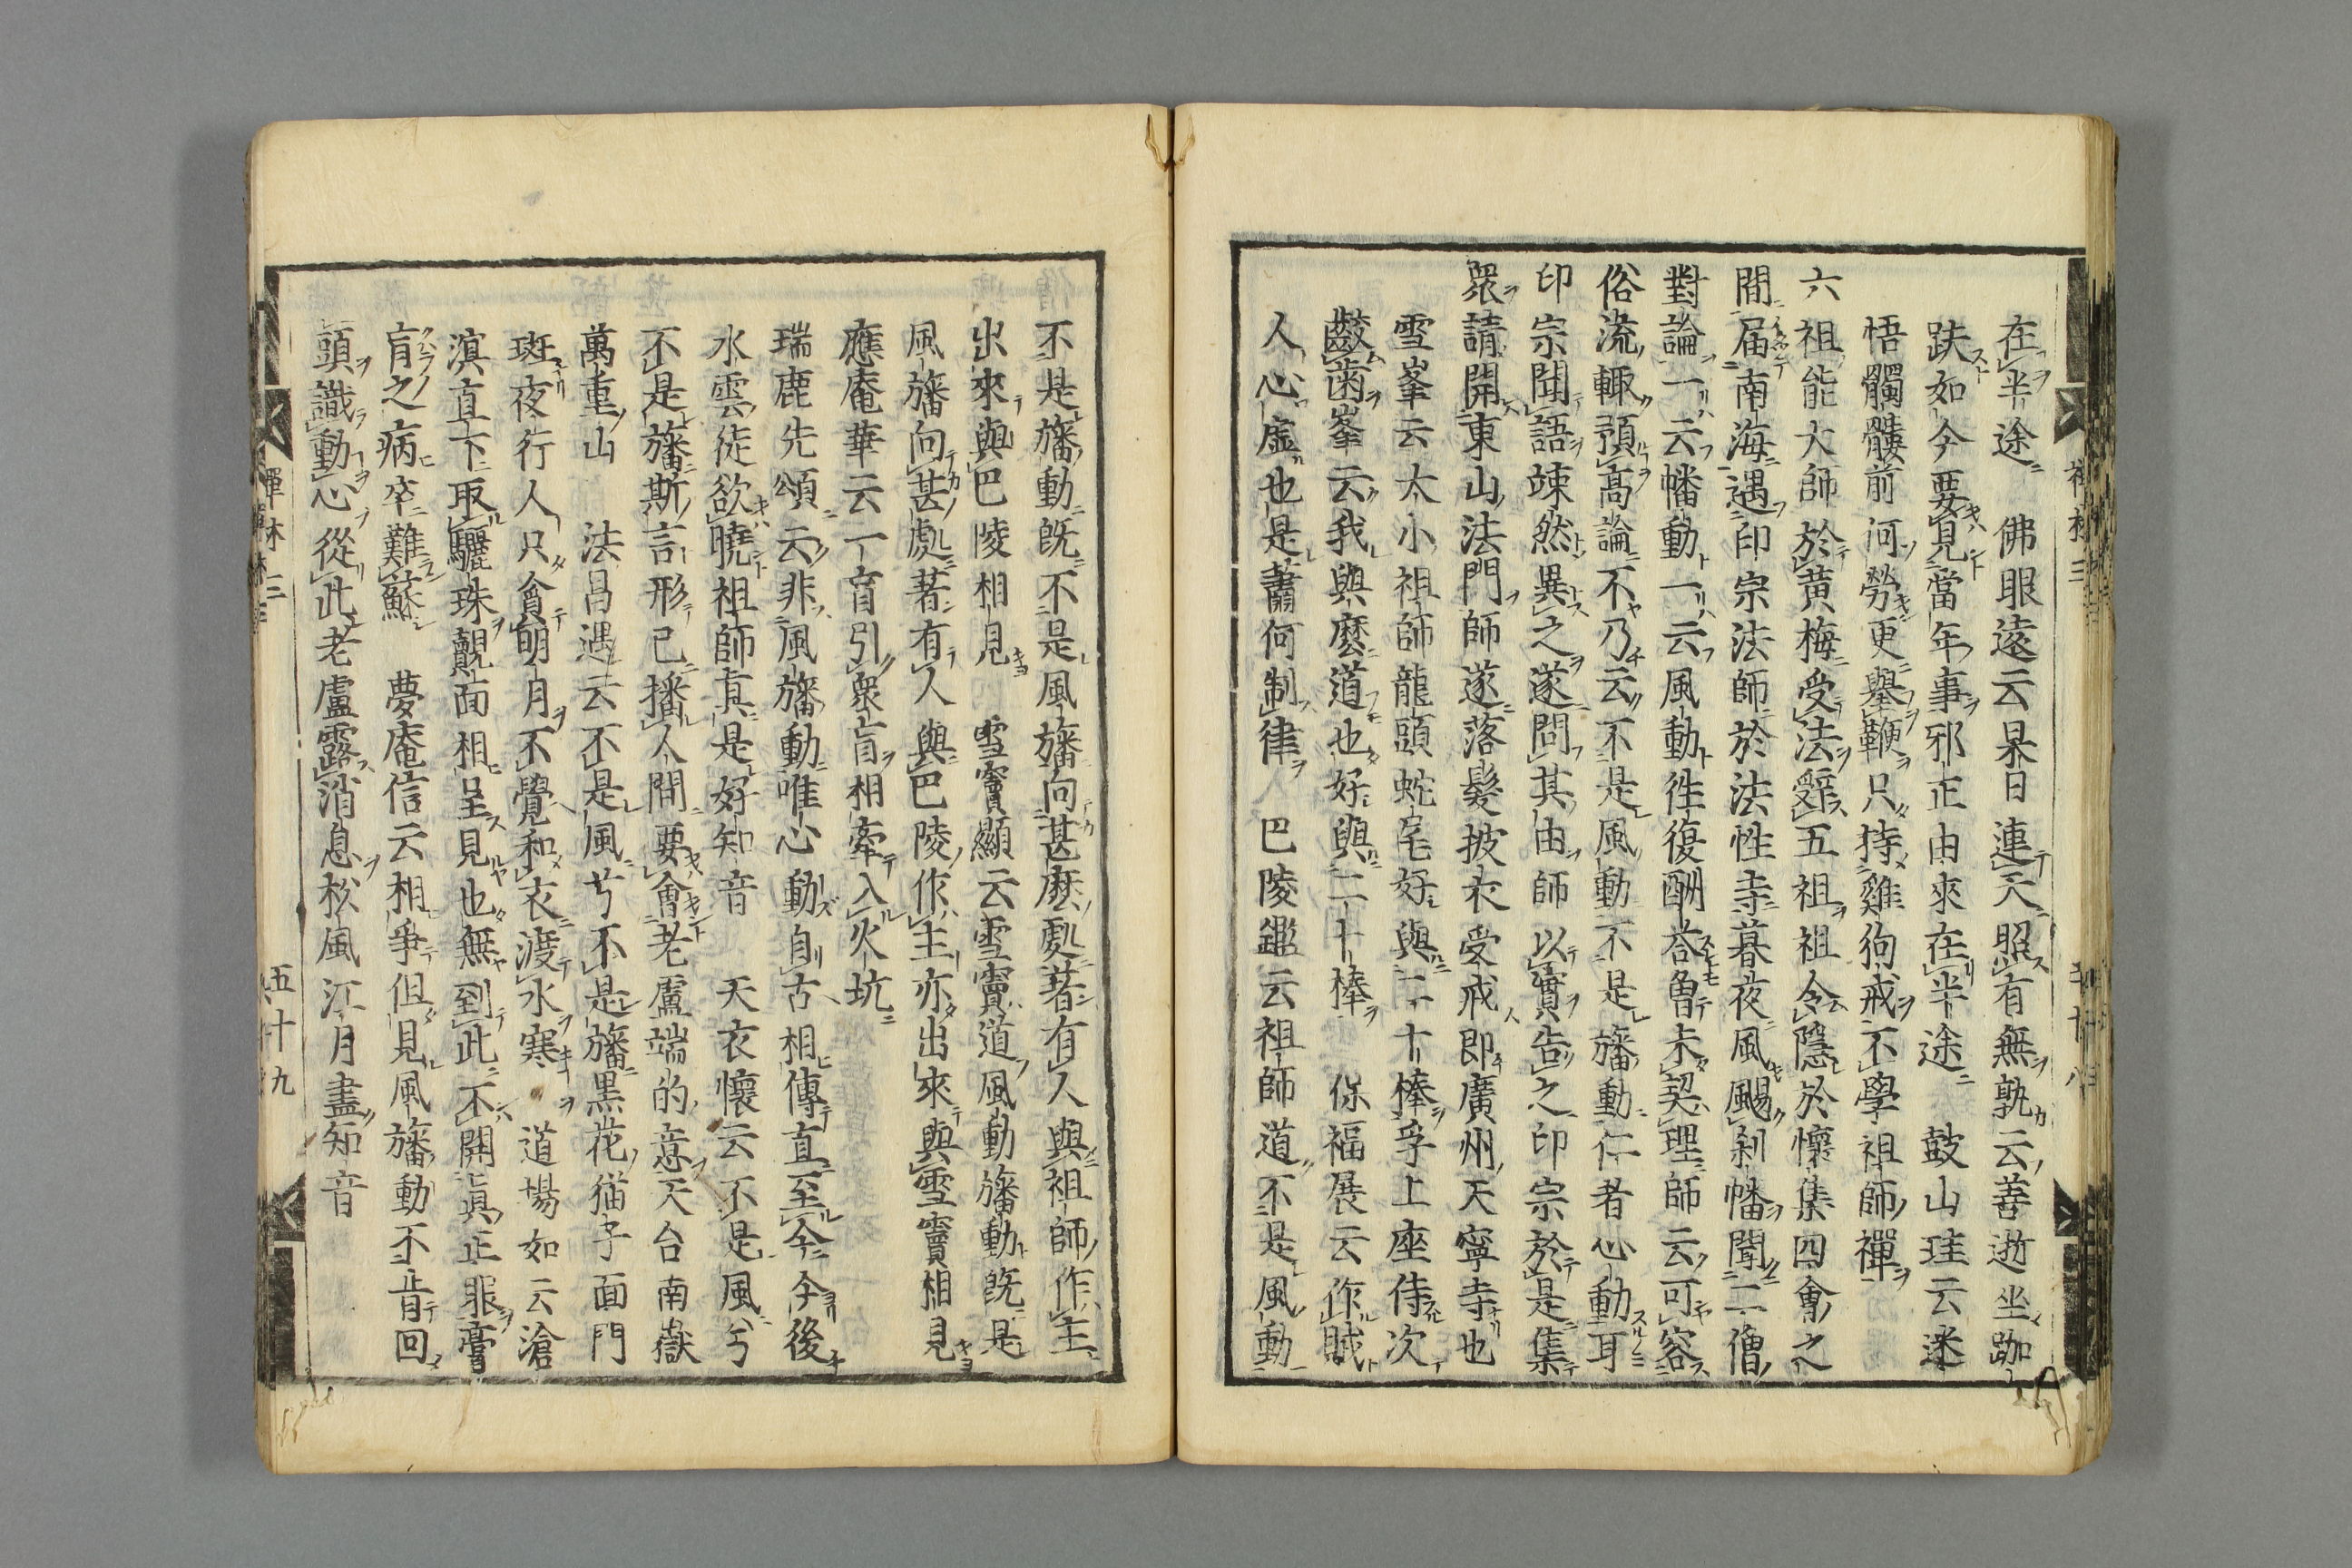 在半途　佛眼遠云杲日連天照有無孰云善逝坐跏
趺如今要見當年事邪正由來在半途　鼓山珪云迷
悟髑髏前何勞更舉鞭只持雞狗戒不學祖師禪
六祖能大師於黄梅受法辭五祖祖令隱於懷集四會之
間届南海遇印宗法師於法性寺暮夜風颺刹幡聞二僧
對論一云幡動一云風動徃復酬荅曾未契理師云可容
俗流輙預髙論不乃云不是風動不是旛動仁者心動耳
印宗聞語竦然異之遂問其由師以實告之印宗於是集
衆請開東山法門師遂落髮披衣受戒即廣州天寧寺也
雪峯云大小祖師龍頭蛇尾好與二十棒孚上座侍次
齩齒峯云我與麽道也好與二十棒　保福展云作賊
人心虚也是蕭何制律　巴陵鑑云祖師道不是風動
不是旛動旣不是風旛向甚麽處著有人與祖師作主
出來與巴陵相見　雪竇顯云雪竇道風動旛動旣是
風旛向甚處著有人與巴陵作主亦出來與雪竇相見
應庵華云一盲引衆盲相牽入火坑
瑞鹿先頌云非風旛動唯心動自古相傳直至今今後
水雲徒欲曉祖師真是好知音　天衣懷云不是風兮
不是旛斯言形已播人間要會老盧端的意天台南嶽
萬重山　法昌遇云不是風兮不是旛黒花猫子面門
斑夜行人只貪明月不覺和衣渡水寒　道場如云滄
溟直下取驪珠覿面相呈見也無到此不開真正眼膏
肓之病卒難蘇　夢庵信云相爭但見風旛動不肯回
頭識動心從此老盧露消息松風江月盡知音
禪林三
五十九